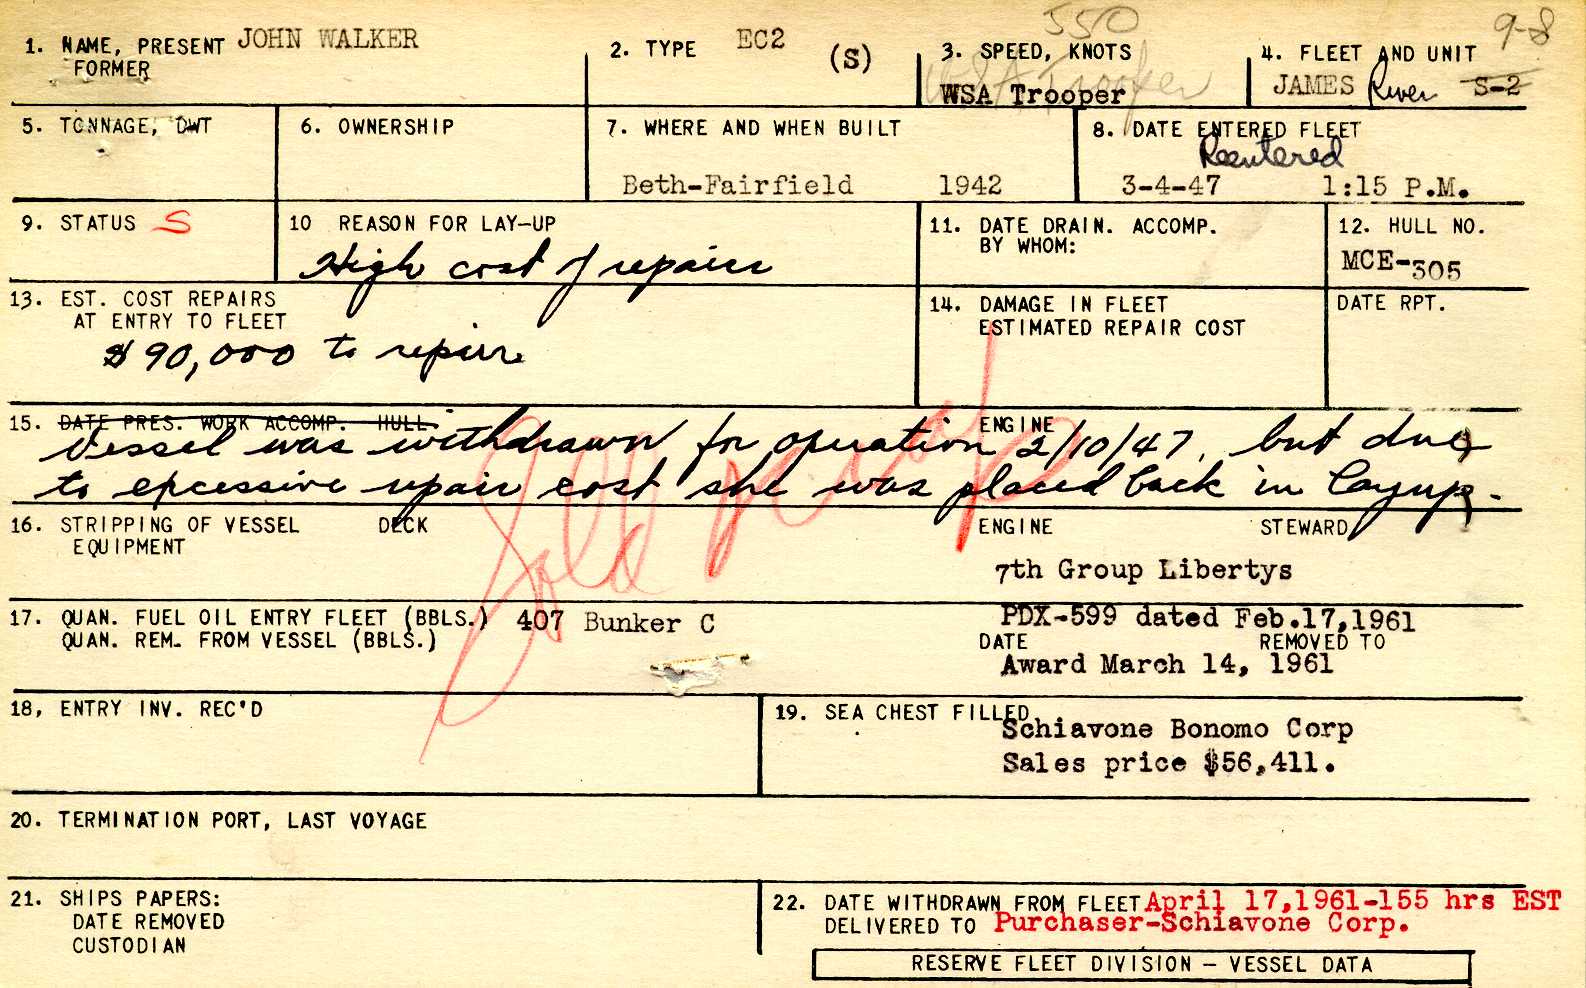 550
9-8
1. NAME, PRESENT JOHN WALKER
FORMER
2. TYPE EC2 (S)
3. SPEED, KNOTS
WSA Trooper
WSA Trooper
4. FLEET AND UNIT
JAMES River S-2
5. TONNAGE, DWT
6. OWNERSHIP
7. WHERE AND WHEN BUILT
Beth-Fairfield 1942
8. DATE ENTERED FLEET
Reentered
3-4-47 1:15 P.M.
9. STATUS S
10 REASON FOR LAY-UP
High cost of repairs
11. DATE DRAIN. ACCOMP.
BY WHOM:
12. HULL NO.
MCE-305
13. EST. COST REPAIRS
AT ENTRY TO FLEET
$90,000 to repair
14. DAMAGE IN FLEET
ESTIMATED REPAIR COST
DATE RPT.
15. DATE PRES. WORK ACCOMP. HULL ENGINE
Vessel was withdrawn for operation 2/10/47, but due
to excessive repair cost she was placed back in layup.
Sold
16. STRIPPING OF VESSEL DECK ENGINE STEWARD
EQUIPMENT
7th Group Libertys
17. QUAN. FUEL OIL ENTRY FLEET (BBLS.) 407 Bunker C PDX-599 dated Feb.17,1961
QUAN. REM. FROM VESSEL (BBLS.) DATE REMOVED TO
Award March 14, 1961
18, ENTRY INV. REC'D
19. SEA CHEST FILLED
Schiavone Bonomo Corp
Sales price $56,411.
20. TERMINATION PORT, LAST VOYAGE
21. SHIPS PAPERS:
DATE REMOVED
CUSTODIAN
22. DATE WITHDRAWN FROM FLEET April 17,1961-155 hrs EST
DELIVERED TO Purchaser-Schiavone Corp.
RESERVE FLEET DIVISION - VESSEL DATA